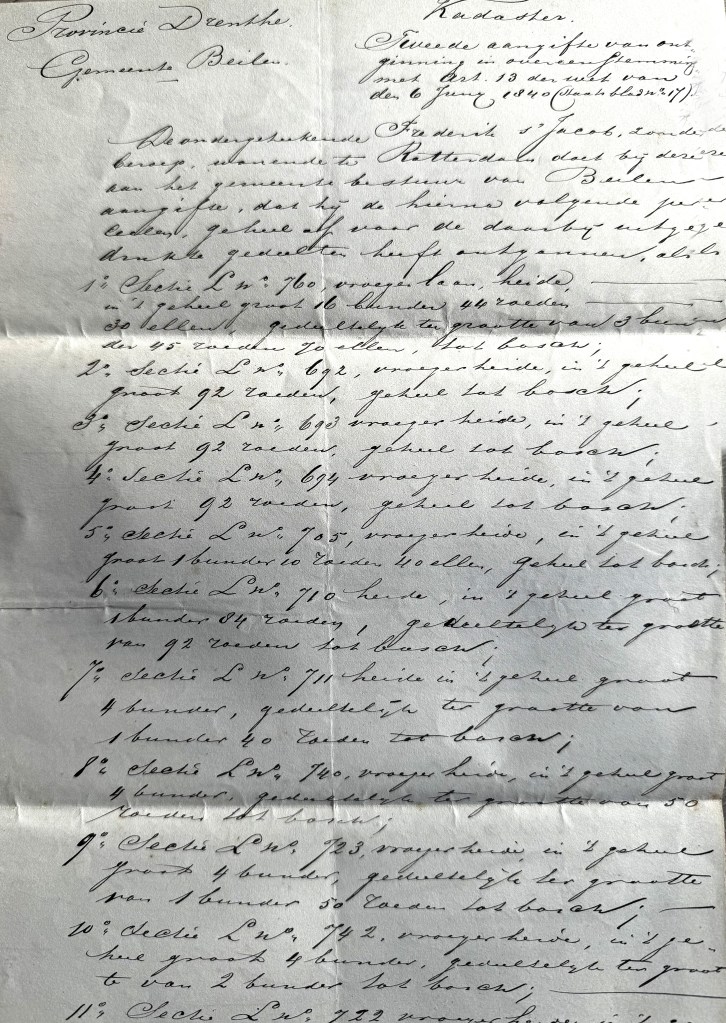 Provincie Drenthe.
Gemeente Beilen.
Kadaster.
Tweede aangifte van ont-
ginning in overeenstemming
met Art. 13 der wet van
den 6 Juny 1840 (Staatsblad no. 17)
De ondergeteekende Frederik s'Jacob, zonder
beroep, wonende te Rotterdam doet bij deze
aan het gemeente bestuur van Beilen
aangifte, dat hij de hierna volgende per-
ceelen, geheel of voor de daarbij uitge
drukte gedeelten heeft ontgonnen, als
1o. Sectie L no. 760, vroeger laan, heide,
in 't geheel groot 16 bunder 44 roeden
30 ellen, gedeeltelijk ter grootte van 3 bun
der 45 roeden 70 ellen, tot bosch;
2o. Sectie L no. 692, vroeger heide, in 't geheel
groot 92 roeden, geheel tot bosch;
3o. Sectie L no. 693 vroeger heide, in 't geheel
groot 92 roeden, geheel tot bosch;
4o. Sectie L no. 694 vroeger heide, in 't geheel
groot 92 roeden, geheel tot bosch;
5o. Sectie L no. 705, vroeger heide, in 't geheel
groot 1 bunder 10 roeden 40 ellen, geheel tot bosch;
6o. Sectie L no. 710 heide, in 't geheel groot
1 bunder 84 roeden, gedeeltelijk ter grootte
van 92 roeden tot bosch;
7o. Sectie L no. 711 heide in 't geheel groot
4 bunder, gedeeltelijk ter grootte van
1 bunder 40 roeden tot bosch;
8o. Sectie L no. 740, vroeger heide, in 't geheel groot
4 bunder, gedeeltelijk ter grootte van 50
roeden tot bosch;
9o. Sectie L no. 723, vroeger heide, in 't geheel
groot 4 bunder, gedeeltelijk ter grootte
van 1 bunder 50 roeden tot bosch;
10o. Sectie L no. 742, vroeger heide, in 't ge-
heel groot 4 bunder, gedeeltelijk ter groot
te van 2 bunder tot bosch;
11o. Sectie L no. 722 vroeger heide in 't ge